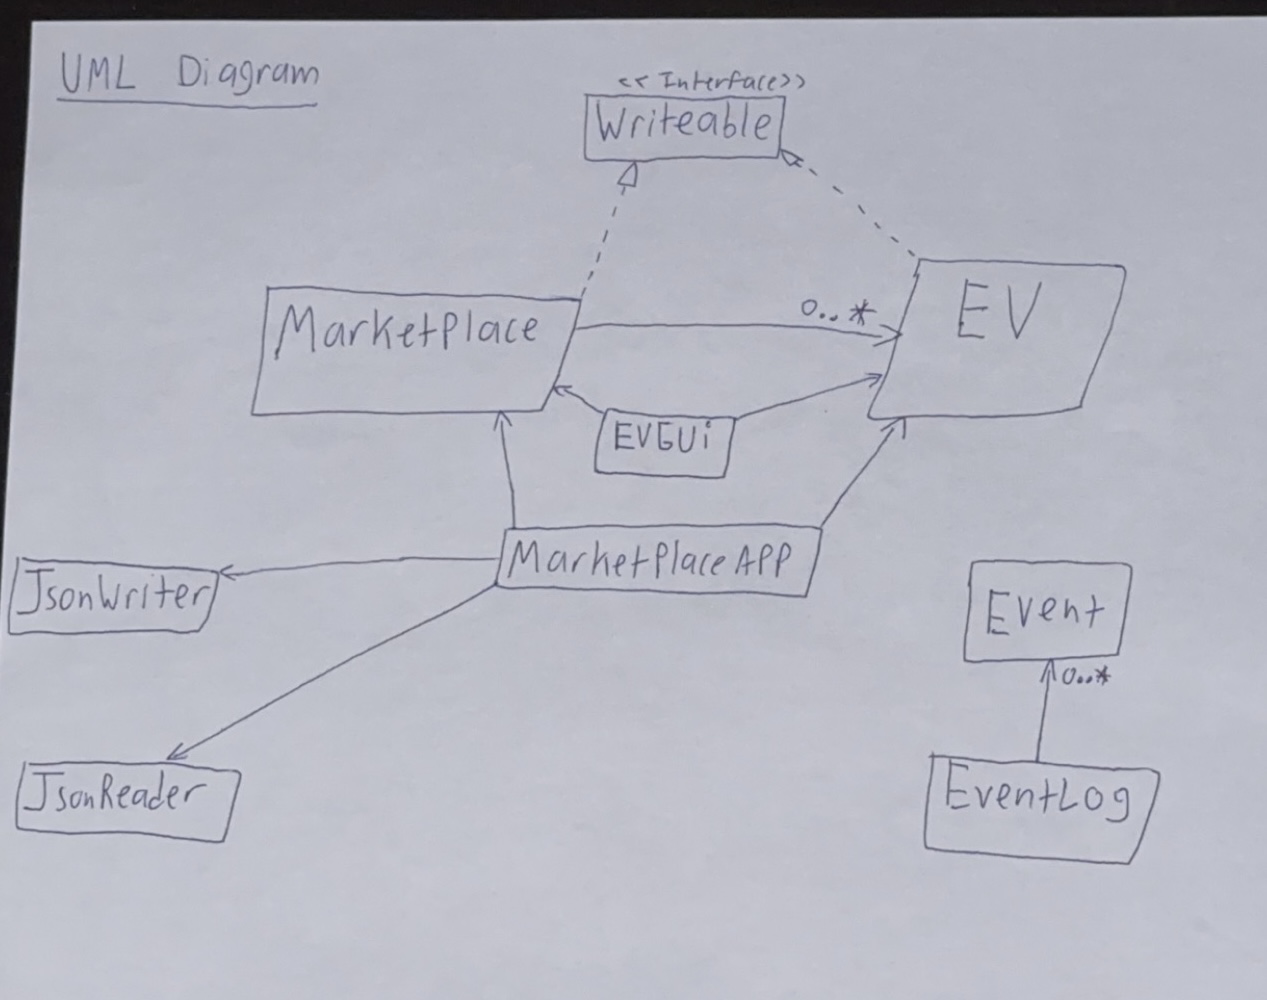 UML Diagram
<< Interface>>
Writeable
Marketplace
0..*
EV
EVGUi
MarketplaceAPP
JsonWriter
Event
0..*
JsonReader
EventLog